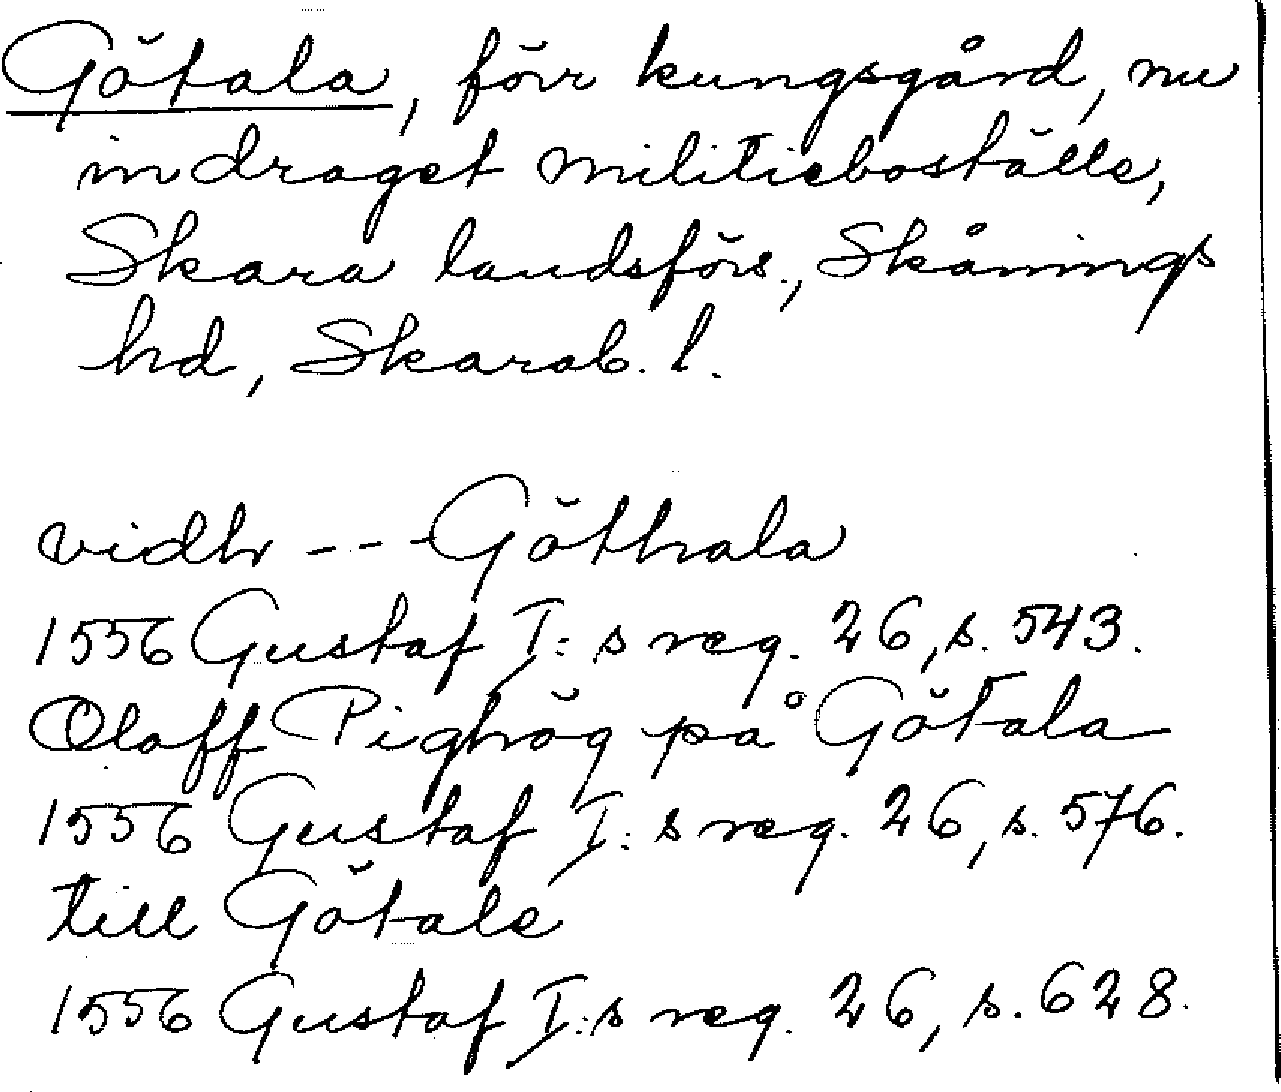 Götala, förr kungsgård, nu
indraget militieboställe,
Skara landsförs., Skånings
hd, Skarab. l.
vidh --- Göthala
1556 Gustaf I:s reg. 26, s. 543.
Olaff Pighög på Götala
1556 Gustaf I:s reg. 26, s. 576.
till Götale
1556 Gustaf I:s reg. 26, s. 628.